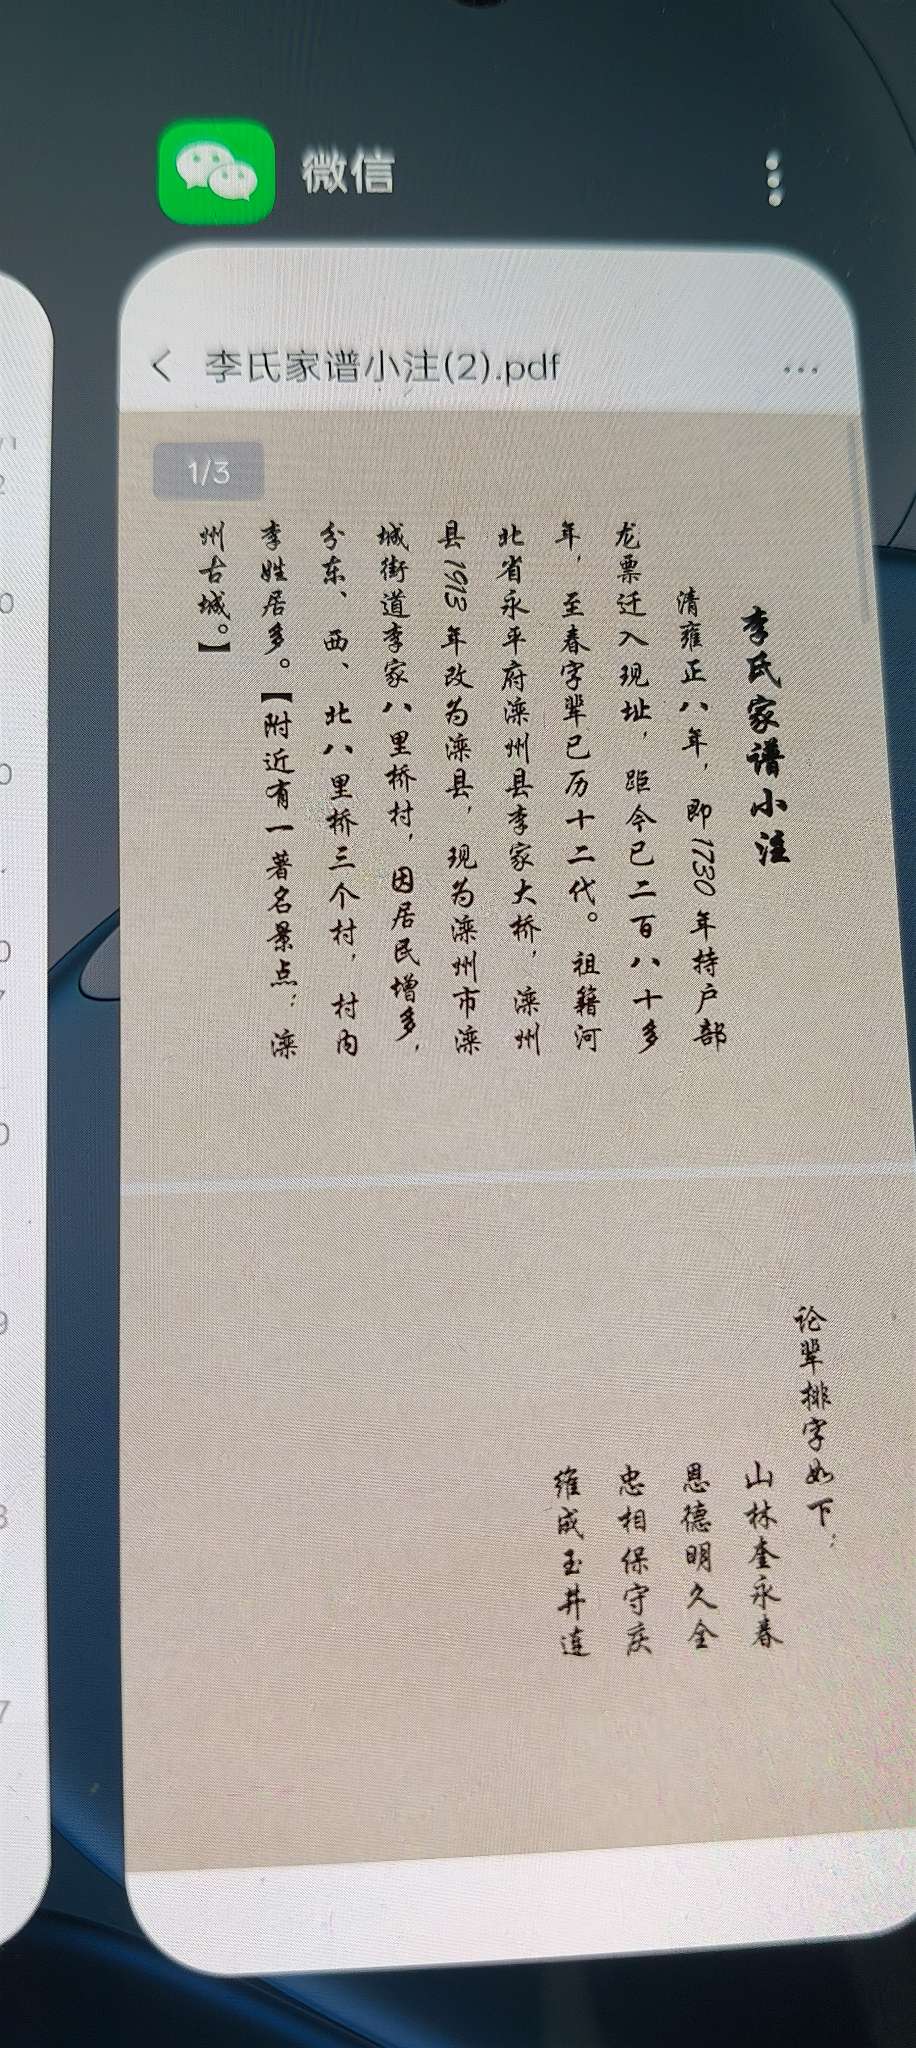 微信
李氏家谱小注(2).pdf
1/3
李氏家谱小注
清雍正八年，即1730年持户部
龙票迁入现址，距今已二百八十多
年，至春字辈已历十二代。祖籍河
北省永平府滦州县李家大桥，滦州
县1913年改为滦县，现为滦州市滦
城街道李家八里桥村，因居民增多，
分东、西、北八里桥三个村，村内
李姓居多。【附近有一著名景点：滦
州古城。】
论辈排字如下：
山林奎永春
恩德明久全
忠相保守庆
维成玉井连